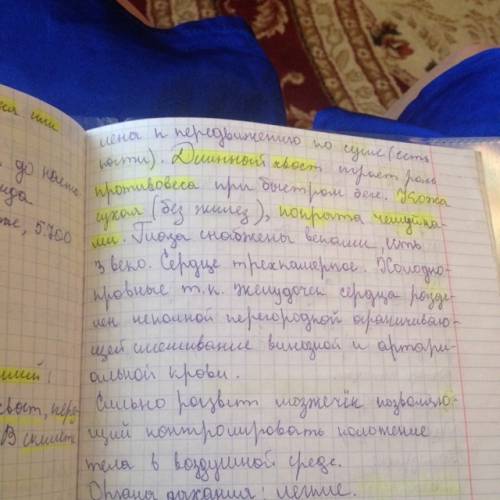 лена к передвижению по суше (есть
ногти). Длинный хвост играет роль
противовеса при быстром беге. Кожа
сухая (без желез), покрыта чешуйка-
ми. Глаза снабжены веками, есть
3 веко. Сердце трехкамерное. Холодно-
кровные т.к. желудочек сердца разде-
лен неполной перегородкой ограничиваю-
щей смешивание венозной и артери-
альной крови.
Сильно развит мозжечок позволяю-
щий контролировать положение
тела в воздушной среде.
Органы дыхания: легкие.
или
до
5.700
хвост,
В